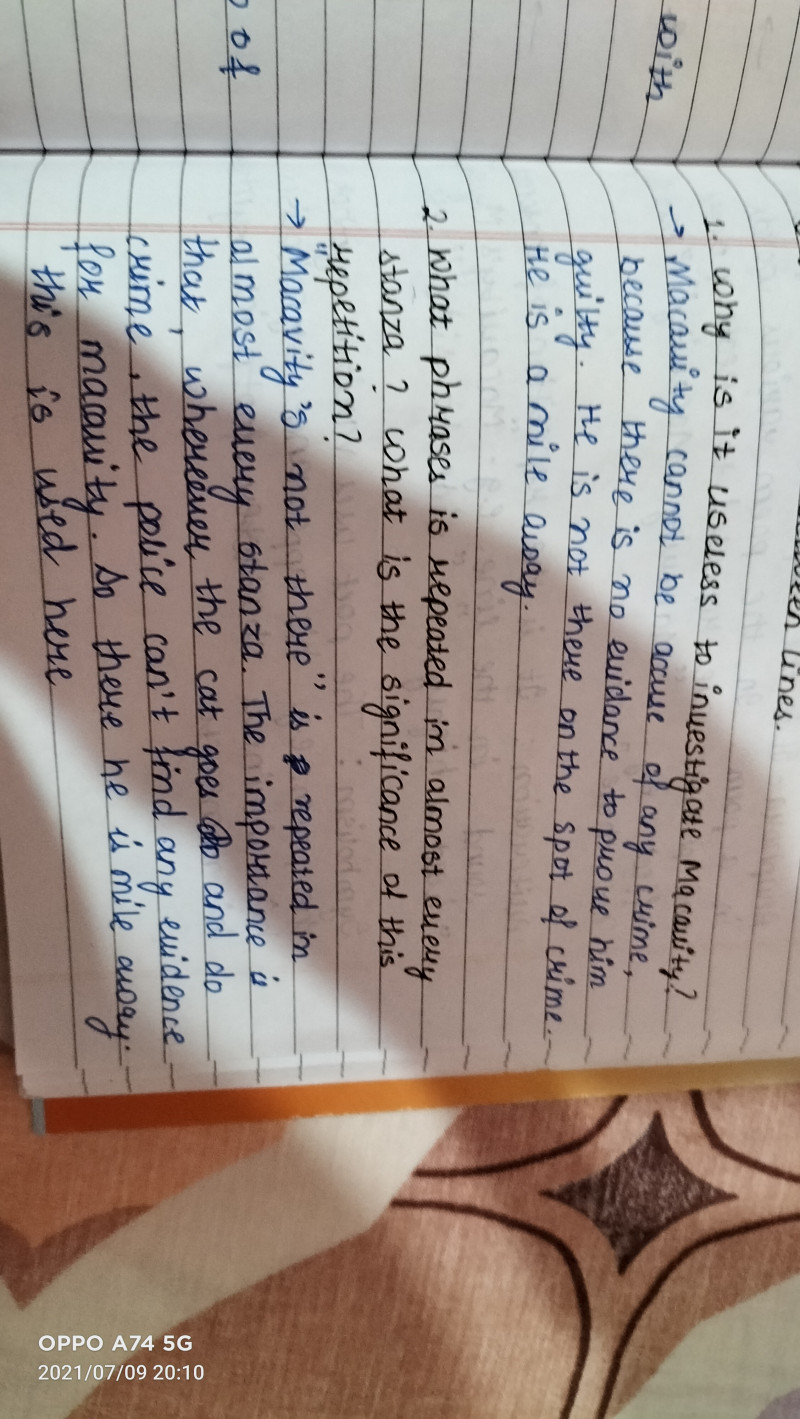 with
of
lines.
1. Why is it useless to investigate Macavity?
→ Macavity cannot be accuse of any crime,
because there is no evidance to prove him
guilty. He is not there on the spot of crime.
He is a mile away.
2. What phrases is repeated in almost every
stanza? What is the significance of this
repetition?
→ "Macavity's not there" is repeated in
almost every stanza. The importance is
that, whereever the cat goes and do
crime, the police can't find any evidence
for macavity. So there he is mile away.
this is used here
OPPO A74 5G
2021/07/09 20:10